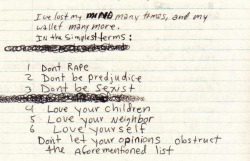 I've lost my MIND many times, and my
wallet many more.
In the simplest terms:
1 Dont Rape
2 Dont be predjudice
3 Dont be Sexist
4 Love your children
5 Love your neighbor
6 Love yourself
Dont let your opinions obstruct
the aforementioned list